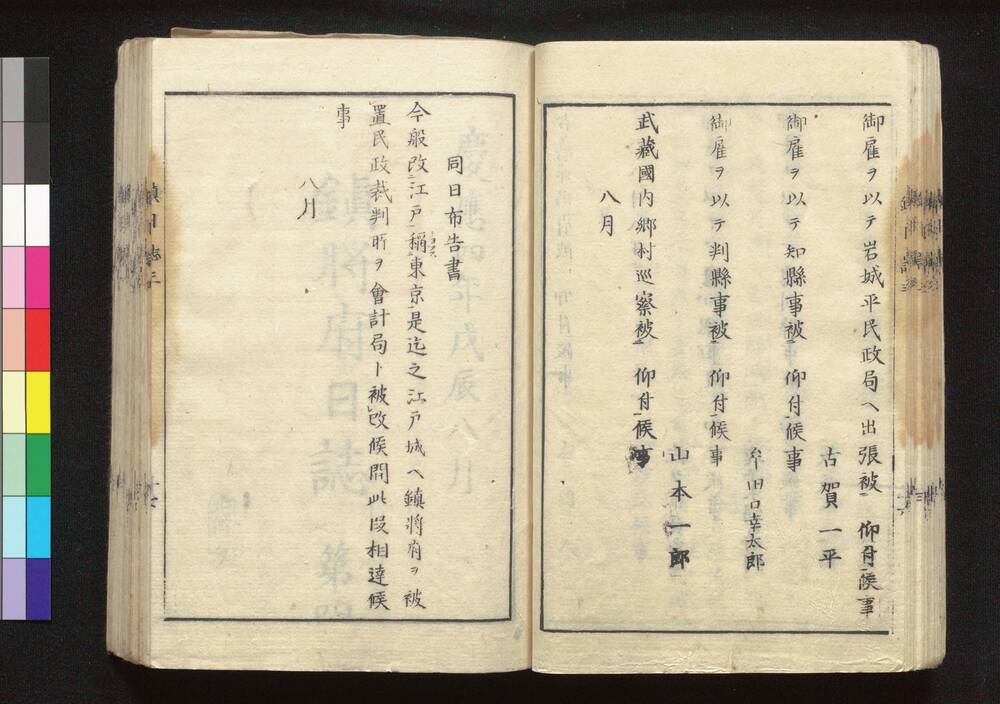 御雇ヲ以テ岩城平民政局ヘ出張被 仰付候事
古賀一平
御雇ヲ以テ知縣事被 仰付候事
牟田口幸太郎
御雇ヲ以テ判縣事被 仰付候事
山本一郎
武藏國内郷村巡察被 仰付候事
八月
同日布告書
今般改江戸稱東京是迄之江戸城ヘ鎮將府ヲ被
置民政裁判所ヲ會計局ト被改候間此段相達候
事
八月